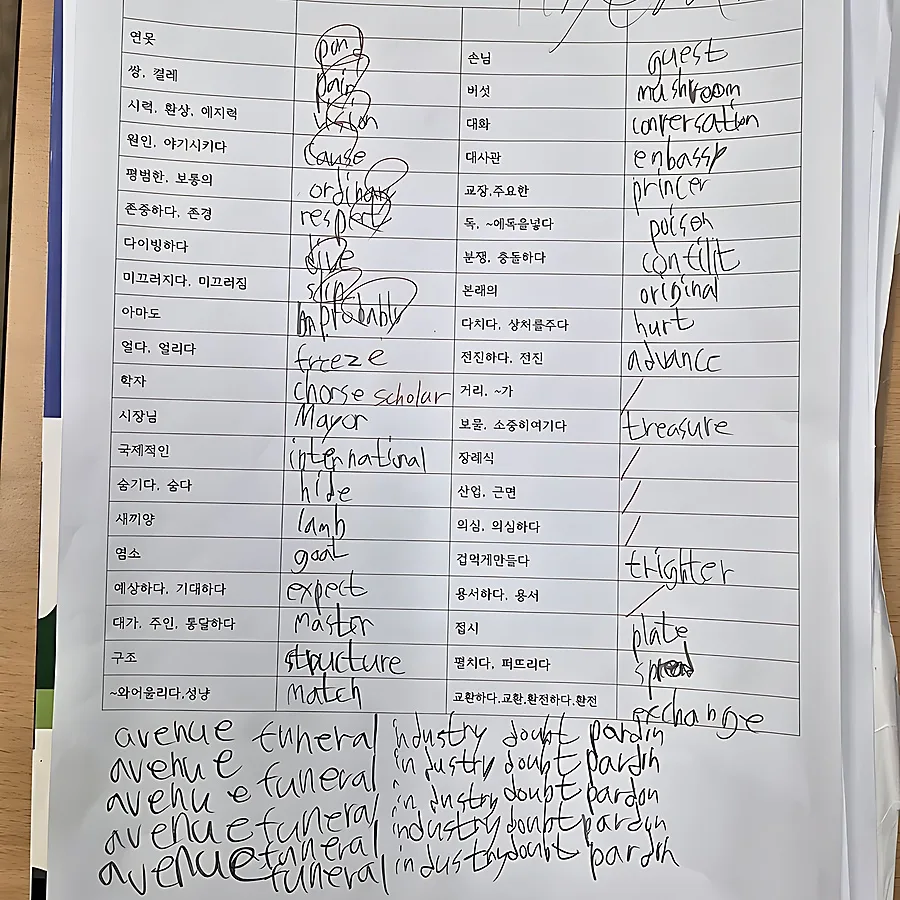 연못 pond 손님 guest
쌍, 켤레 pair 버섯 mushroom
시력, 환상, 예지력 vision 대화 conversation
원인, 야기시키다 cause 대사관 enbassy
평범한, 보통의 ordinary 교장,주요한 princer
존중하다, 존경 respect 독, ~에독을넣다 poison
다이빙하다 dive 분쟁, 충돌하다
미끄러지다, 미끄러짐 slip 본래의 original
아마도 probably 다치다, 상처를주다 hurt
얼다, 얼리다 freeze 전진하다, 전진 advance
학자 chorse scholar 거리, ~가
시장님 Mayor 보물, 소중히여기다 treasure
국제적인 international 장례식
숨기다, 숨다 hide 산업, 근면
새끼양 lamb 의심, 의심하다
염소 goat 겁먹게만들다 frighter
예상하다, 기대하다 expect 용서하다, 용서
대가, 주인, 통달하다 master 접시 plate
구조 structure 펼치다, 퍼뜨리다 spread
~와어울리다,성냥 match 교환하다,교환,환전하다,환전 exchange
avenue funeral industry doubt pardin
avenue funeral industry doubt pardin
avenue funeral industry doubt pardon
avenue funeral industry doubt pardin
avenue funeral industry doubt pardin